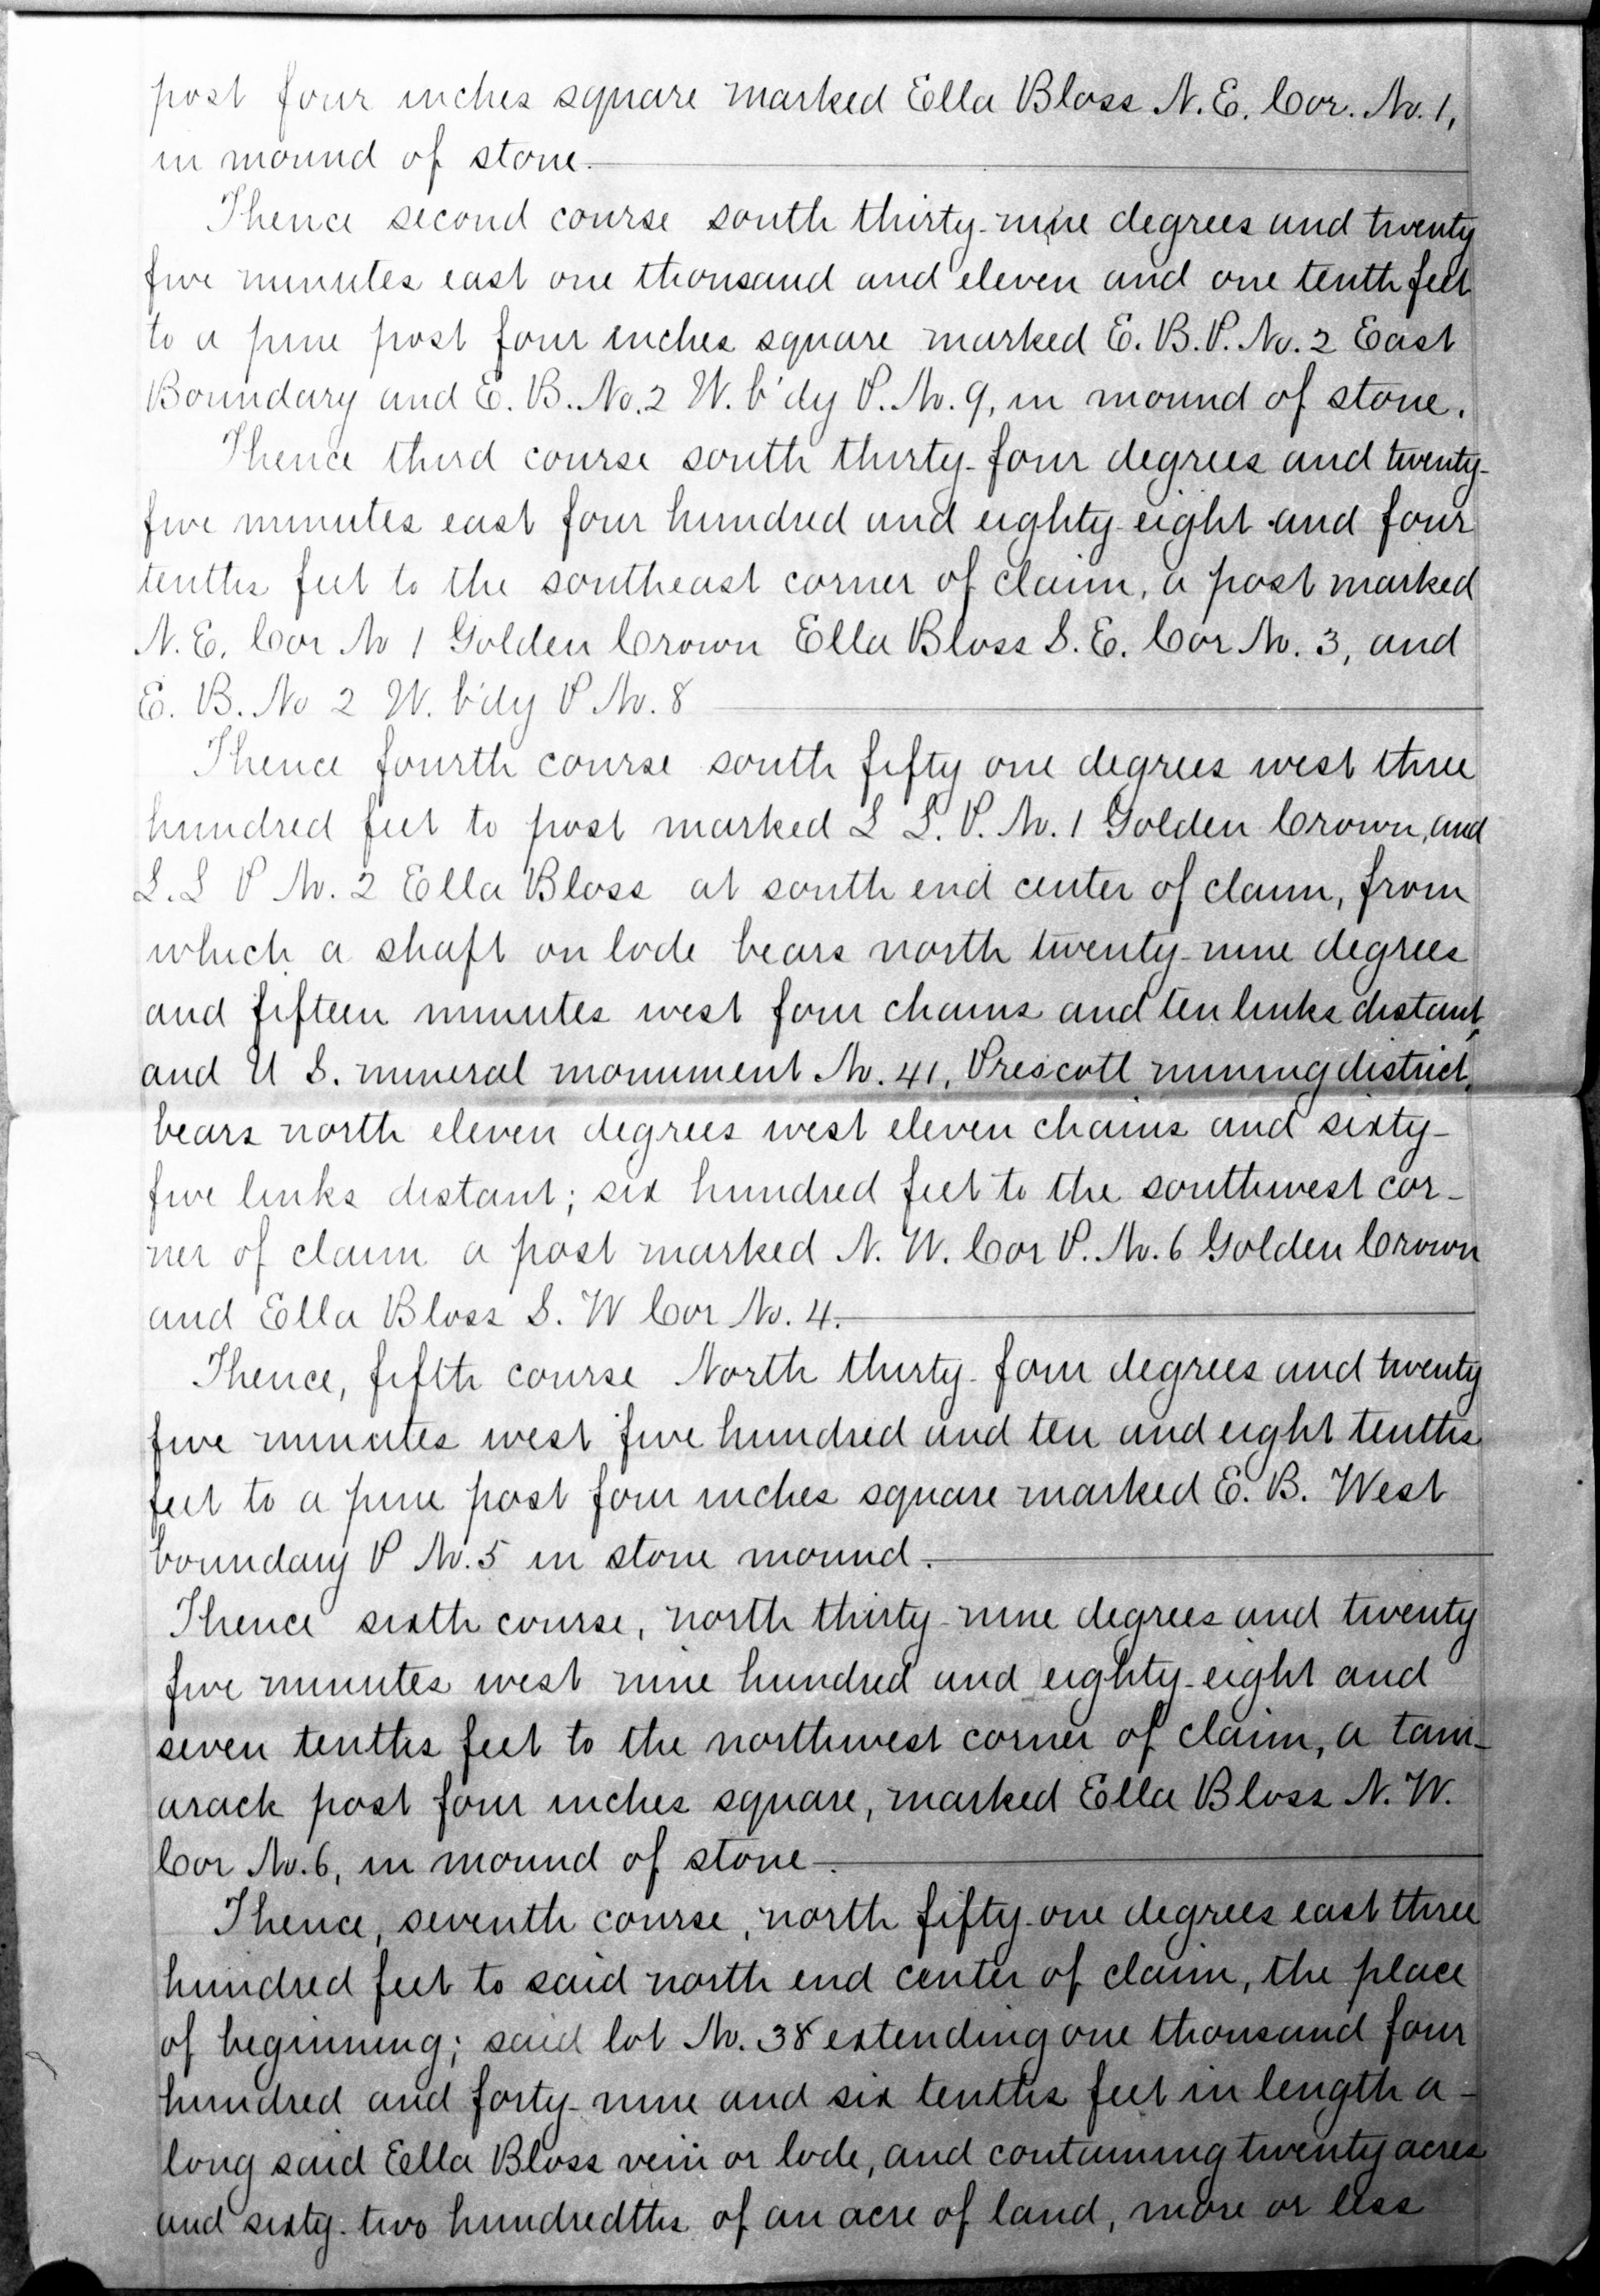 post four inches square marked Ella Bloss N.E. Cor. No. 1,
in mound of stone.
Thence second course south thirty-nine degrees and twenty
five minutes east one thousand and eleven and one tenth feet
to a pine post four inches square marked E. B. P. No. 2 East
Boundary and E. B. No. 2 W. b'dy P. No. 9, in mound of stone.
Thence third course south thirty-four degrees and twenty-
five minutes east four hundred and eighty-eight and four
tenths feet to the southeast corner of claim, a post marked
N. E. Cor No 1 Golden Crown Ella Bloss S. E. Cor No. 3, and
E. B. No 2 W. b'dy P No. 8
Thence fourth course south fifty one degrees west three
hundred feet to post marked L L. P. No. 1 Golden Crown, and
L. L P No. 2 Ella Bloss at south end center of claim, from
which a shaft on lode bears north twenty-nine degrees
and fifteen minutes west four chains and ten links distant,
and U S. mineral monument No. 41, Prescott mining district,
bears north eleven degrees west eleven chains and sixty-
five links distant; six hundred feet to the southwest cor-
ner of claim a post marked N. W. Cor P. No. 6 Golden Crown
and Ella Bloss S. W Cor No. 4.
Thence, fifth course North thirty-four degrees and twenty
five minutes west five hundred and ten and eight tenths
feet to a pine post four inches square marked E. B. West
boundary P No. 5 in stone mound.
Thence sixth course, north thirty-nine degrees and twenty
five minutes west nine hundred and eighty-eight and
seven tenths feet to the northwest corner of claim, a tam-
arack post four inches square, marked Ella Bloss N. W.
Cor No. 6, in mound of stone.
Thence, seventh course, north fifty-one degrees east three
hundred feet to said north end center of claim, the place
of beginning; said lot No. 38 extending one thousand four
hundred and forty-nine and six tenths feet in length a-
long said Ella Bloss vein or lode, and containing twenty acres
and sixty-two hundredths of an acre of land, more or less